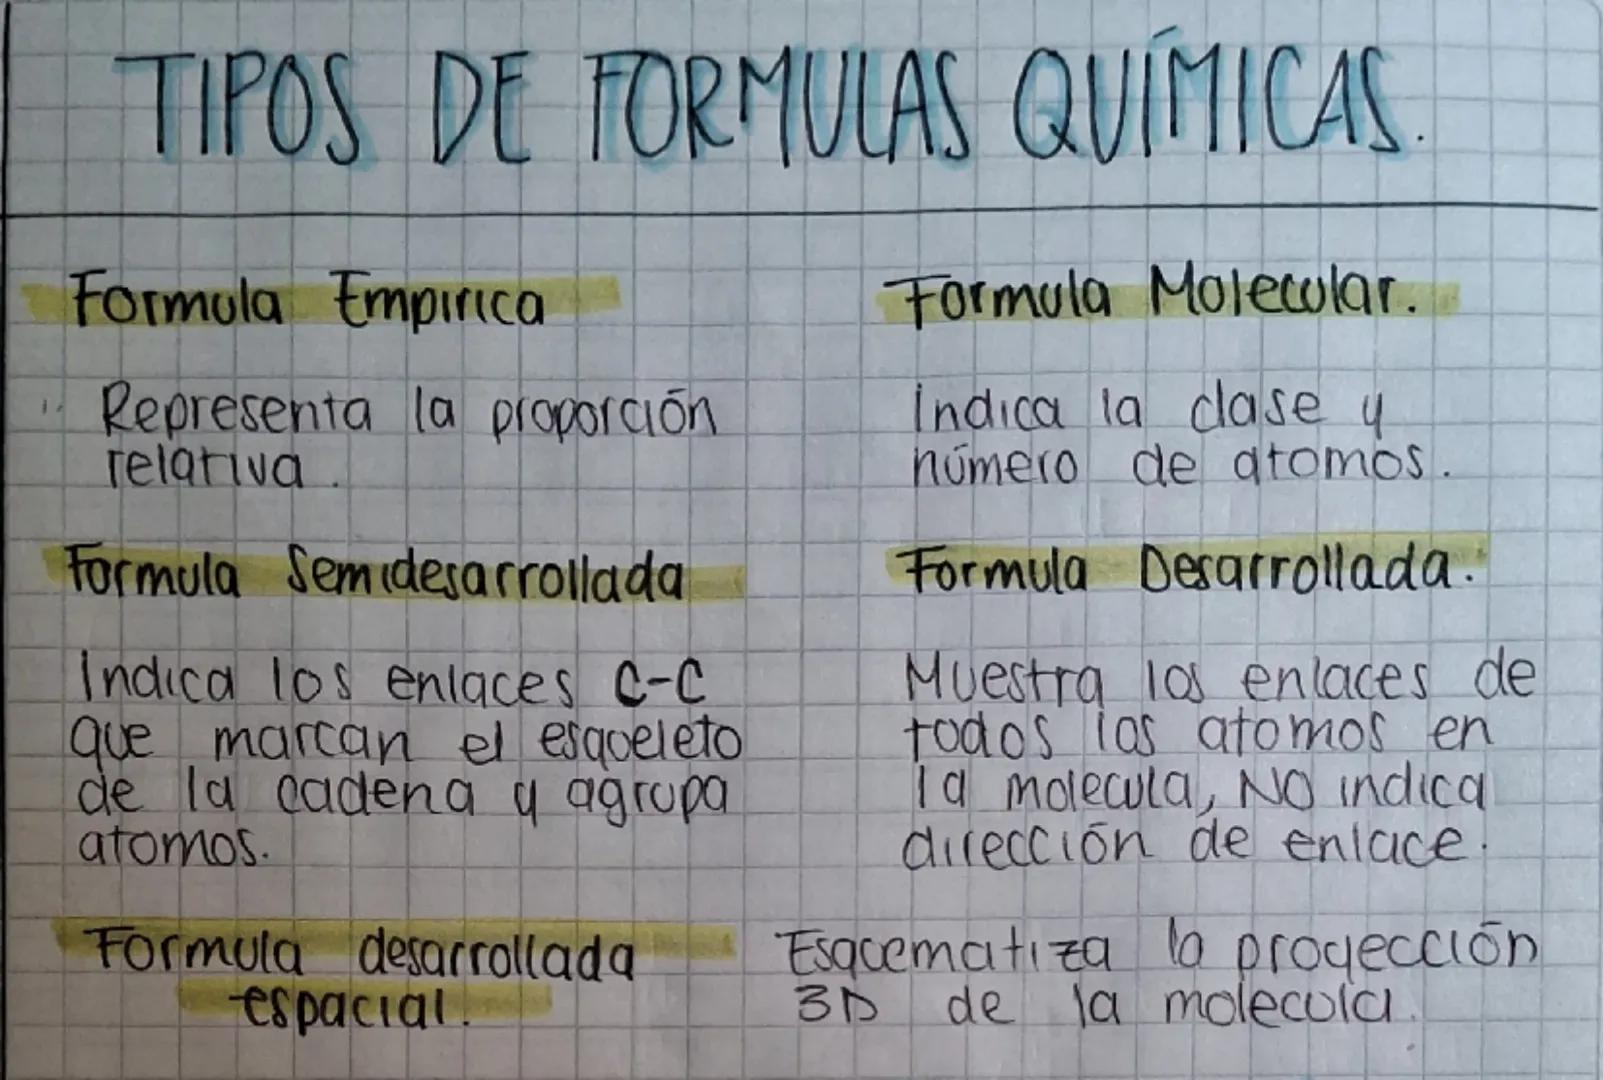 TIPOS DE FORMULAS QUÍMICAS.
Formula Empirica
Representa la proporción
relativa.
Formula Molecular.
Indica la clase y
número de atomos.
Formula Semidesarrollada
Indica los enlaces C-C
que marcan el esqueleto
de la cadena y agrupa
atomos.
Formula Desarrollada.
Muestra los enlaces de
todos los atomos en
la molecula, NO indica
dirección de enlace.
Formula desarrollada
espacial.
Esquematiza la proyección
3D de la molecula.